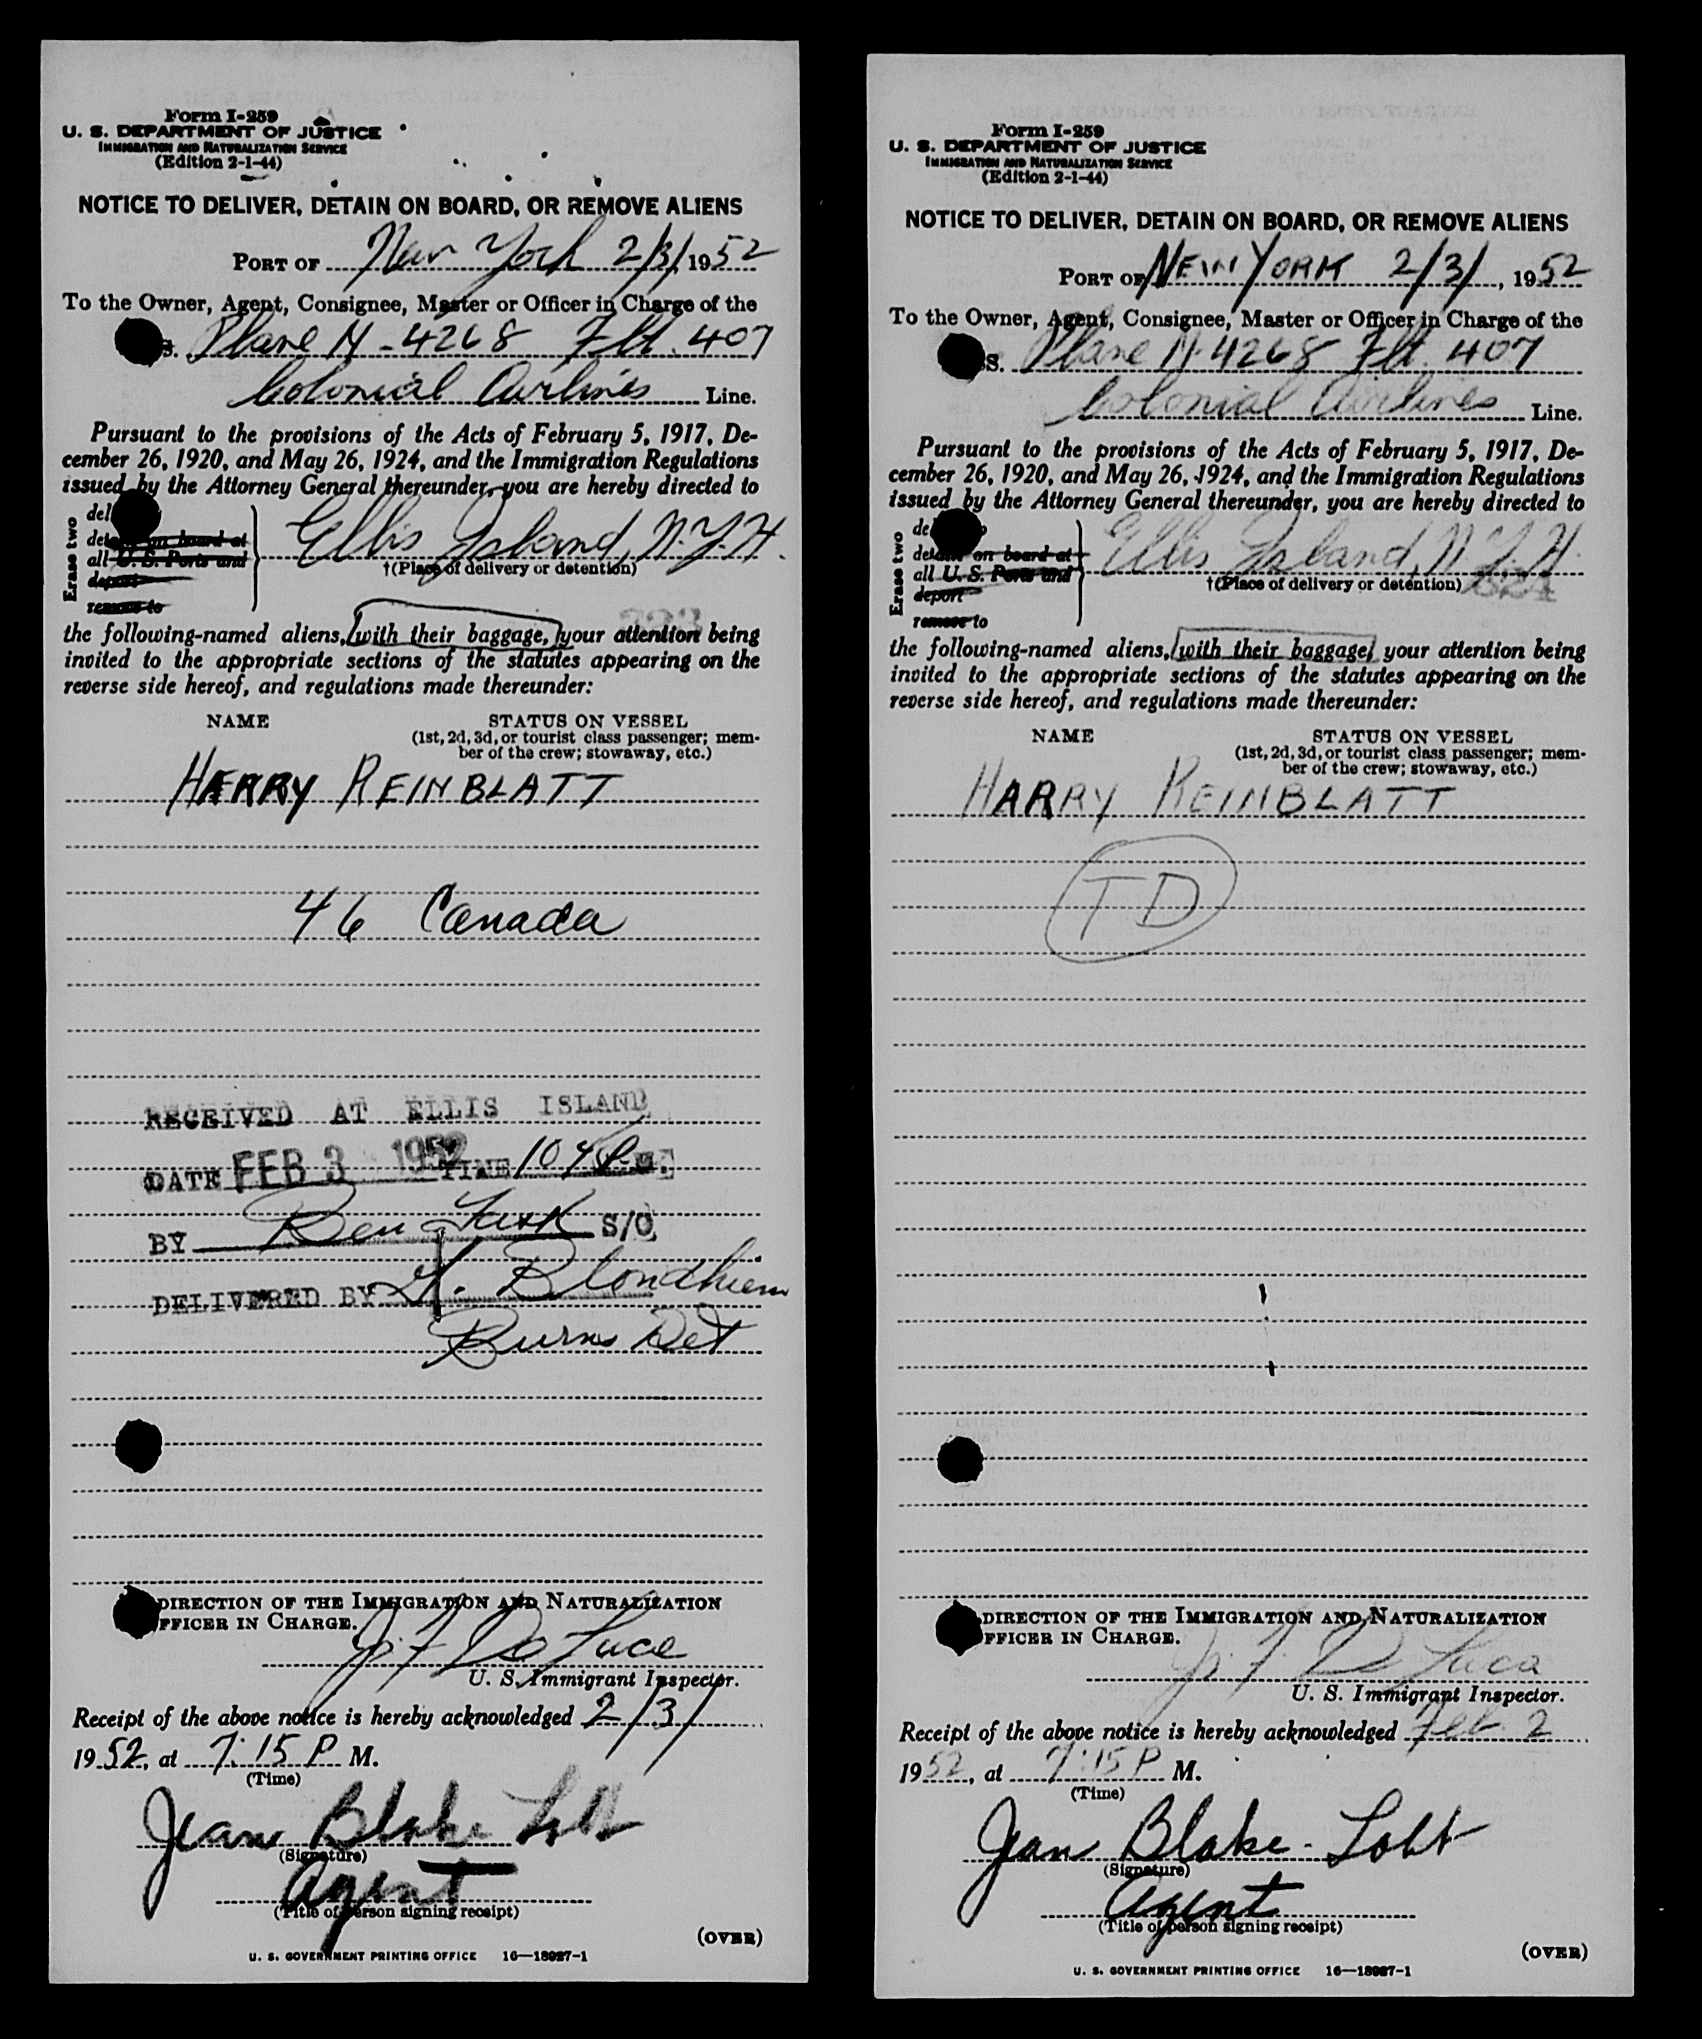 Form I-259
U. S. DEPARTMENT OF JUSTICE
IMMIGRATION AND NATURALIZATION SERVICE
(Edition 2-1-44)
NOTICE TO DELIVER, DETAIN ON BOARD, OR REMOVE ALIENS
PORT OF New York 2/3/, 1952
To the Owner, Agent, Consignee, Master or Officer in Charge of the
S. Plane N-4268 Flt. 407
Colonial Airlines Line.
Pursuant to the provisions of the Acts of February 5, 1917, De-
cember 26, 1920, and May 26, 1924, and the Immigration Regulations
issued by the Attorney General thereunder, you are hereby directed to
Erase two
del
detain on board at
all U. S. Ports and
deport
remove to
Ellis Island, N.Y.H.
†(Place of delivery or detention)
the following-named aliens, with their baggage, your attention being
invited to the appropriate sections of the statutes appearing on the
reverse side hereof, and regulations made thereunder:
NAME STATUS ON VESSEL
(1st, 2d, 3d, or tourist class passenger; mem-
ber of the crew; stowaway, etc.)
HARRY REINBLATT
46 Canada
RECEIVED AT ELLIS ISLAND
DATE FEB 3 1952 TIME
BY Ben S/O
DELIVERED BY H. Blondhiem
Burns Det
DIRECTION OF THE IMMIGRATION AND NATURALIZATION
FFICER IN CHARGE.
J. F. De Luca
U. S. Immigrant Inspector.
Receipt of the above notice is hereby acknowledged 2/3/
1952, at 7:15 P M.
(Time)
Jean Blake
(Signature)
Agent
(Title of person signing receipt)
(OVER)
U. S. GOVERNMENT PRINTING OFFICE 16—18987-1
Form I-259
U. S. DEPARTMENT OF JUSTICE
IMMIGRATION AND NATURALIZATION SERVICE
(Edition 2-1-44)
NOTICE TO DELIVER, DETAIN ON BOARD, OR REMOVE ALIENS
PORT OF NEW YORK 2/3/, 1952
To the Owner, Agent, Consignee, Master or Officer in Charge of the
SS. Plane N-4268 Flt. 407
Colonial Airlines Line.
Pursuant to the provisions of the Acts of February 5, 1917, De-
cember 26, 1920, and May 26, 1924, and the Immigration Regulations
issued by the Attorney General thereunder, you are hereby directed to
Erase two
de
detain on board at
all U. S. Ports and
deport
remove to
Ellis Island, N.Y.H.
†(Place of delivery or detention)
the following-named aliens, with their baggage, your attention being
invited to the appropriate sections of the statutes appearing on the
reverse side hereof, and regulations made thereunder:
NAME STATUS ON VESSEL
(1st, 2d, 3d, or tourist class passenger; mem-
ber of the crew; stowaway, etc.)
HARRY REINBLATT
TD
DIRECTION OF THE IMMIGRATION AND NATURALIZATION
FFICER IN CHARGE.
J. F. De Luca
U. S. Immigrant Inspector.
Receipt of the above notice is hereby acknowledged Feb. 2
1952, at 7:15 P M.
(Time)
Jean Blake-
(Signature)
Agent
(Title of person signing receipt)
(OVER)
U. S. GOVERNMENT PRINTING OFFICE 16—18987-1